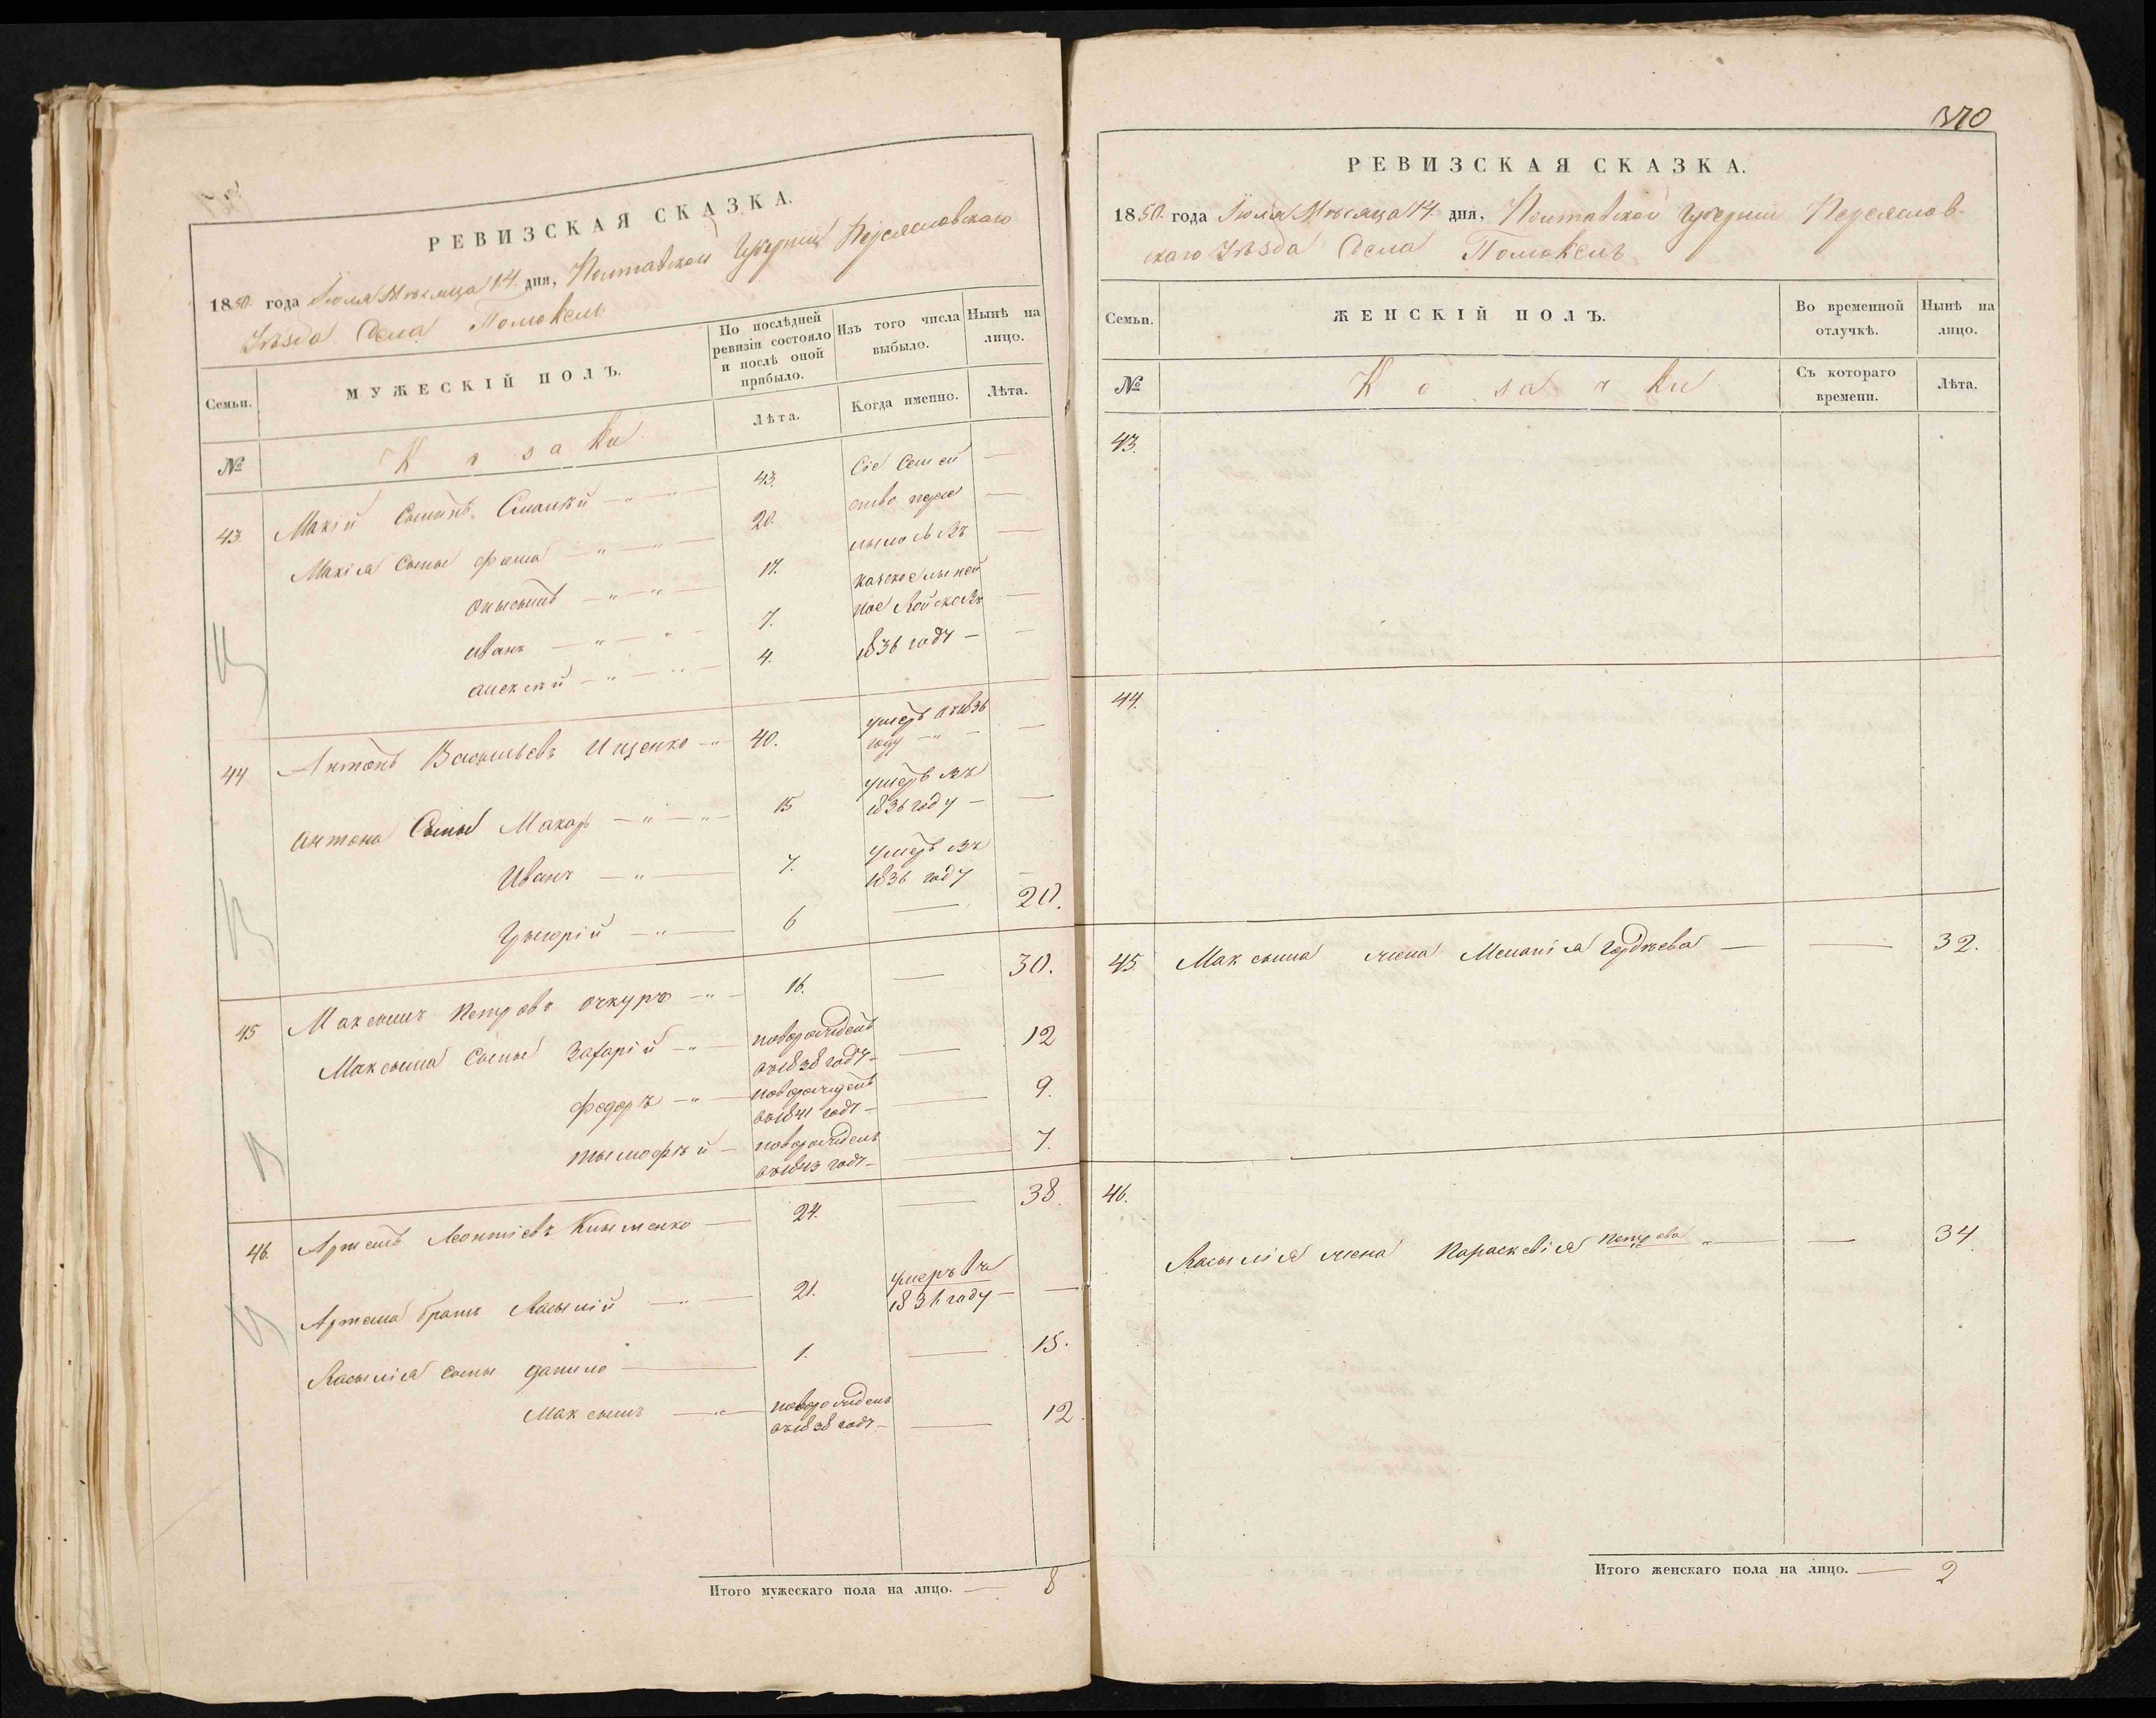 РЕВИЗСКАЯ СКАЗКА.
1850. года Іюля Мѣсяца 14. дня, Полтавской Губерніи Переясловскаго
Уѣзда Села Помокель
Семьи.
МУЖЕСКІЙ ПОЛЪ.
По послѣдней ревизіи состояло и послѣ оной прибыло.
Изъ того числа выбыло.
Нынѣ на лицо.
№
Козаки
Лѣта.
Когда именно.
Лѣта.
43. Макѣй 43. Сіе Семей
Макѣя Сыны Фома 20. ство пере
17.
Иванъ 7. ное Войско Въ
Алексѣй 4. 1836 году
44 Антонъ Васильевъ Ищенко 40. умеръ въ 1836
году
Антона Сыны Макаръ 15 умеръ въ
1836 году
Иванъ 7. умеръ въ
1836 году
Григорій 6 20.
45 Максымъ Петровъ Очкуръ 16. 30.
Максыма Сыны Захарій новорожденъ 12
въ 1838 году
Федоръ новорожденъ 9.
въ 1841 году
Тымофѣй новорожденъ 7.
въ 1843 году
46. Артемъ Леонтіевъ Клыменко 24. 38.
Артема братъ Васылій 21. умеръ въ
1836 году
Васылія сыны Данило 1. 15.
Максымъ новорожденъ 12.
въ 1838 году
Итого мужескаго пола на лицо. 8
370
РЕВИЗСКАЯ СКАЗКА.
1850. года Іюля Мѣсяца 14. дня, Полтавской Губерніи Переяслов-
скаго Уѣзда Села Помокель
Семьи.
ЖЕНСКІЙ ПОЛЪ.
Во временной отлучкѣ.
Нынѣ на лицо.
№
Козачки
Съ котораго времени.
Лѣта.
43.
44.
45 Максыма жена Меланія Гордѣева 32.
46.
Васылія жена Параскевія Петрова 34
Итого женскаго пола на лицо. 2